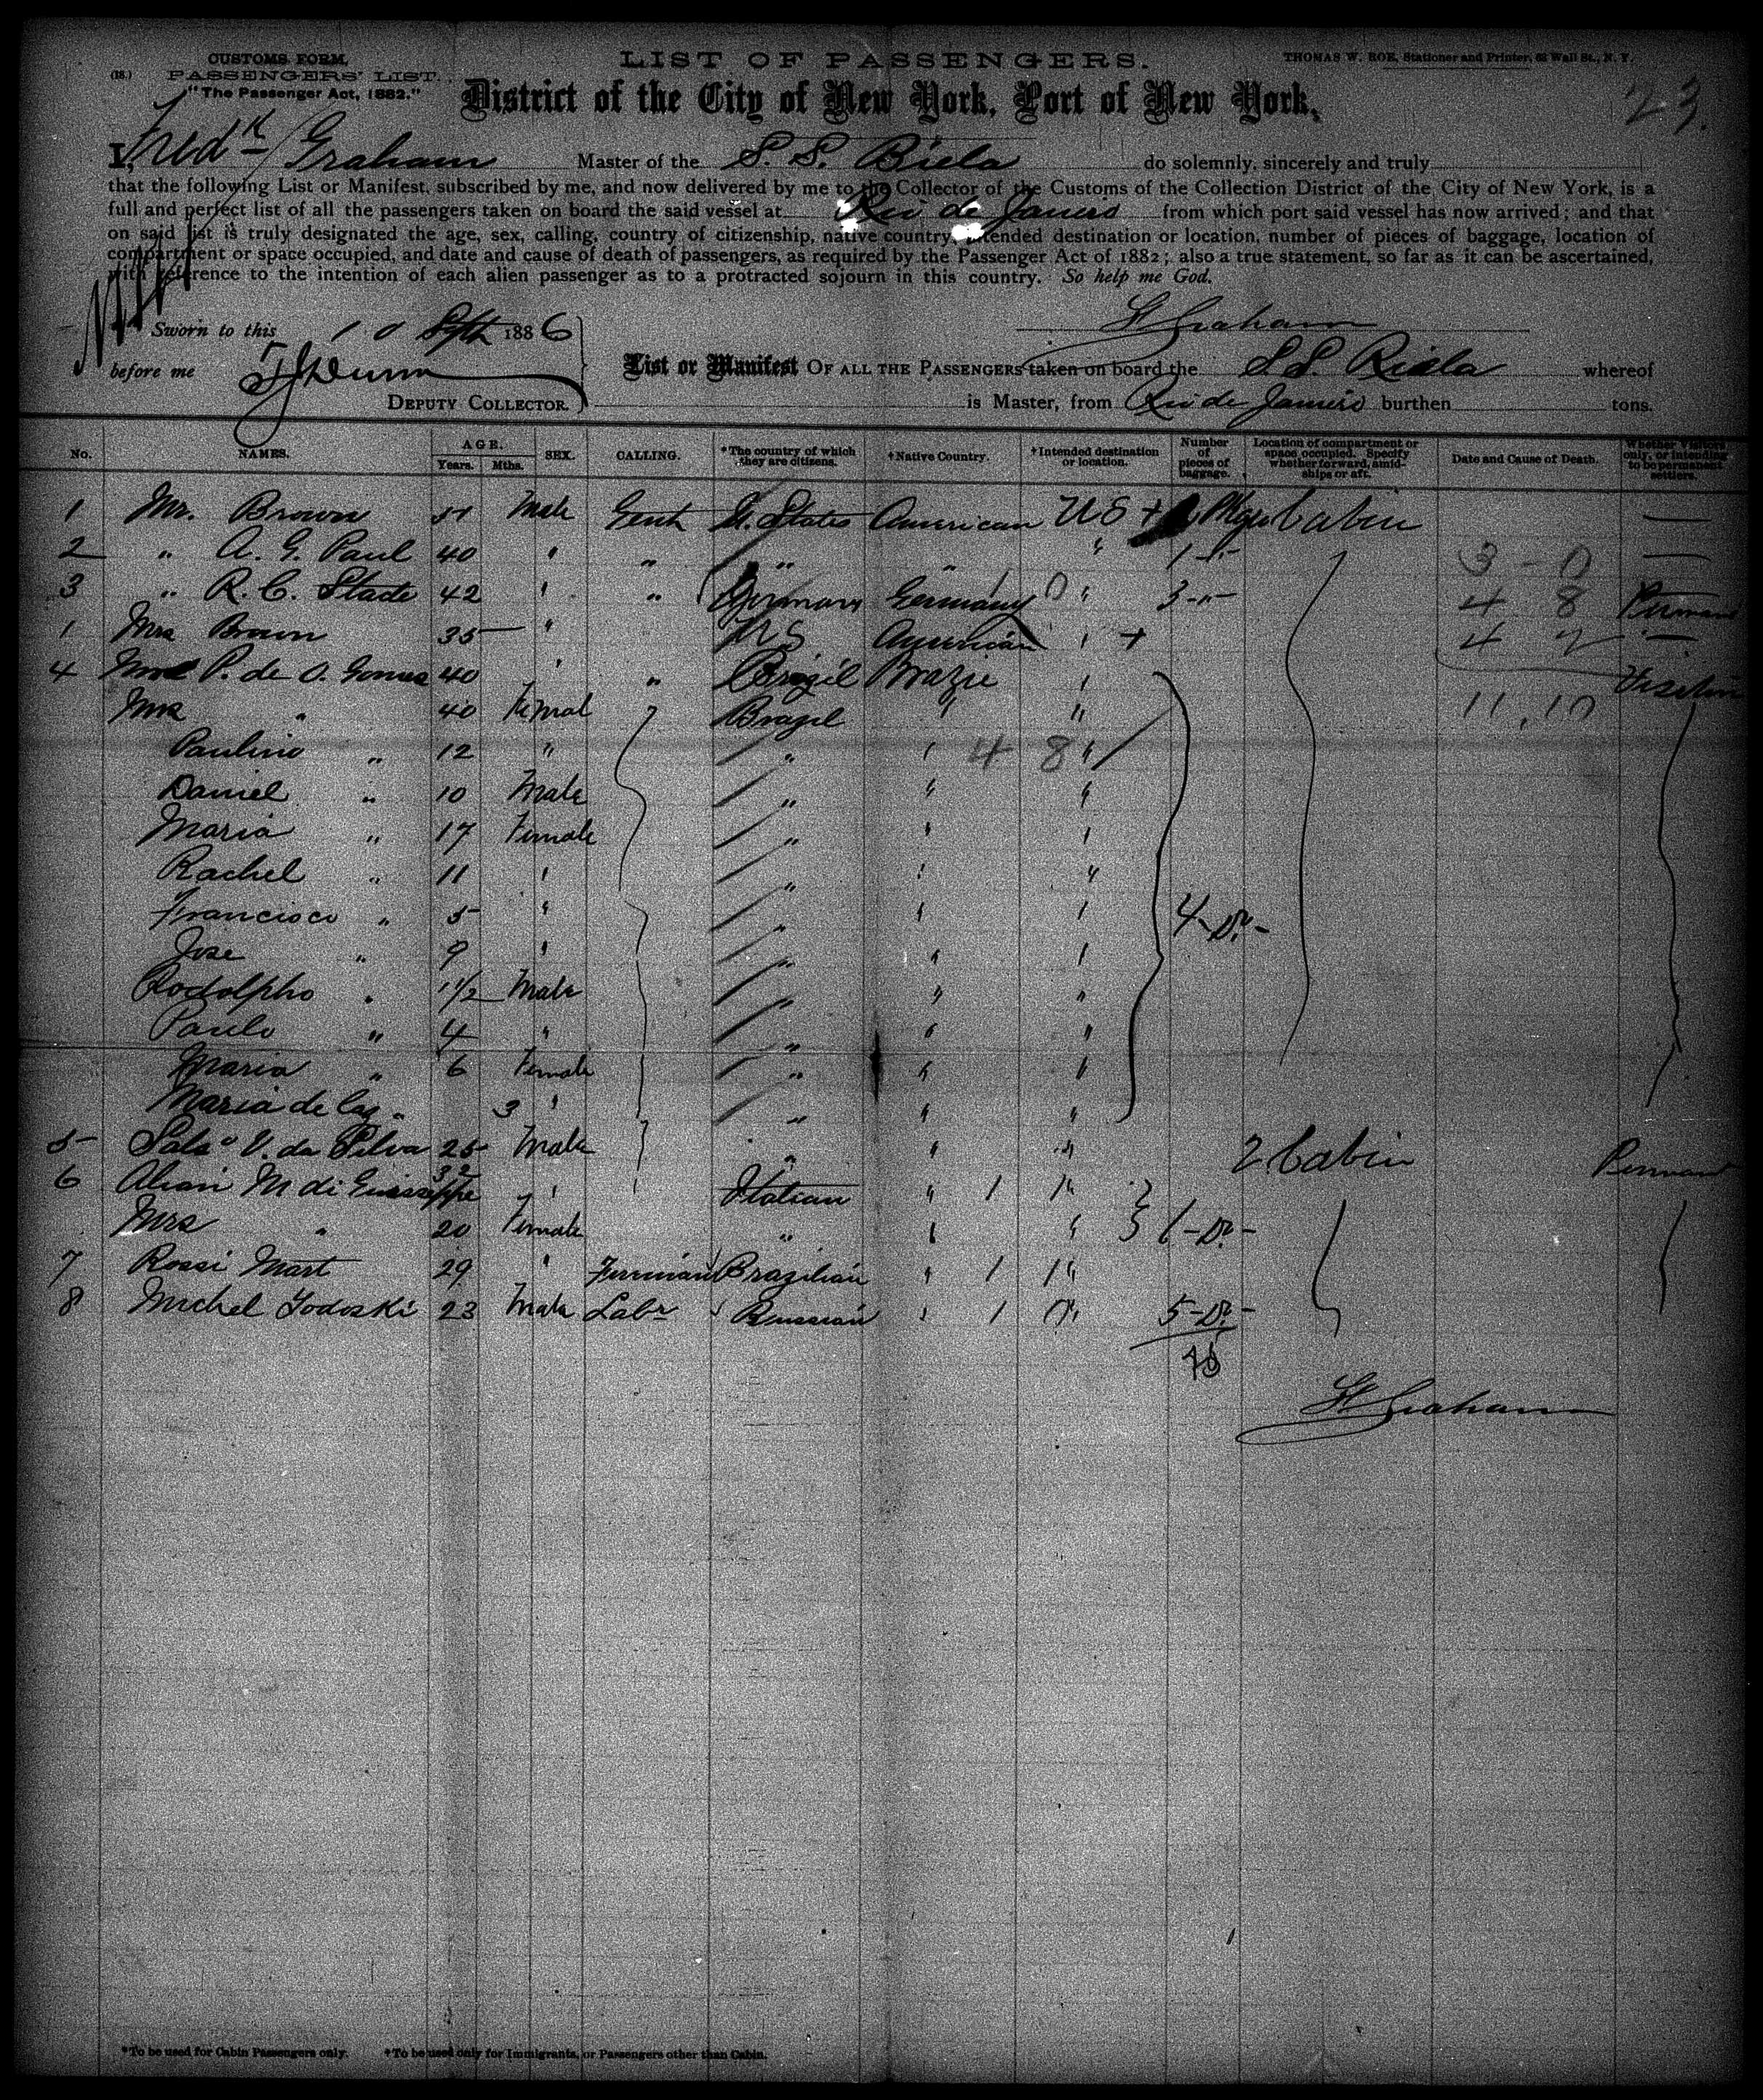 CUSTOMS FORM. LIST OF PASSENGERS. THOMAS W. ROE, Stationer and Printer, 62 Wall St., N. Y.
(18.) PASSENGERS' LIST.
"The Passenger Act, 1882." District of the City of New York, Port of New York, 23.
I, Fredk Graham Master of the S. S. Biela do solemnly, sincerely and truly
that the following List or Manifest, subscribed by me, and now delivered by me to the Collector of the Customs of the Collection District of the City of New York, is a
full and perfect list of all the passengers taken on board the said vessel at Rio de Janeiro from which port said vessel has now arrived; and that
on said list is truly designated the age, sex, calling, country of citizenship, native country, intended destination or location, number of pieces of baggage, location of
compartment or space occupied, and date and cause of death of passengers, as required by the Passenger Act of 1882; also a true statement, so far as it can be ascertained,
with reference to the intention of each alien passenger as to a protracted sojourn in this country. So help me God.
Sworn to this 10 Septh 1886 Graham
before me Dunn List or Manifest OF ALL THE PASSENGERS taken on board the S.S. Biela whereof
DEPUTY COLLECTOR. is Master, from Rio de Janeiro burthen tons.
No. NAMES. AGE. Years. Mths. SEX. CALLING. *The country of which they are citizens. †Native Country. †Intended destination or location. Number of pieces of baggage. Location of compartment or space occupied. Specify whether forward, amidships or aft. Date and Cause of Death. Whether Visitors only, or intending to be permanent settlers.
1 Mr. Brown 51 Male Gent U. States American US + Pkgs Cabin —
2 " A. G. Paul 40 " " " " " 1 -"- 3 - 0 —
3 " R. C. Stade 42 " " German Germany 0 " 3 -"- 4 8
1 Mrs Brown 35 " US American " + 4 2 —
4 P. de O. Gomes 40 " " Brazil Brazie "
Mrs " 40 Femal Brazil " " 11,10
Paulino " 12 " " " 4 8 "
Daniel " 10 Male " " "
Maria " 17 Female " " "
Rachel " 11 " " " "
Francisco " 5 " " " " 4 - Do -
Jose " 9 " " " "
Rodolpho " 1½ Male " " "
Paulo " 4 " " " "
Maria " 6 Female " " "
Maria de " 3 " " " "
5 V. da Silva 25 Male " " " 2 Cabin
6 M di Guisseppe 32 " Italian " 1 1 "
Mrs " 20 Female " " " 1 - Do -
7 Rossi Mart 29 " Brazilian " 1 1 "
8 Michel Todoski 23 Male Labr Russian " 1 0 " 5 - Do -
Graham
*To be used for Cabin Passengers only. †To be used only for Immigrants, or Passengers other than Cabin.